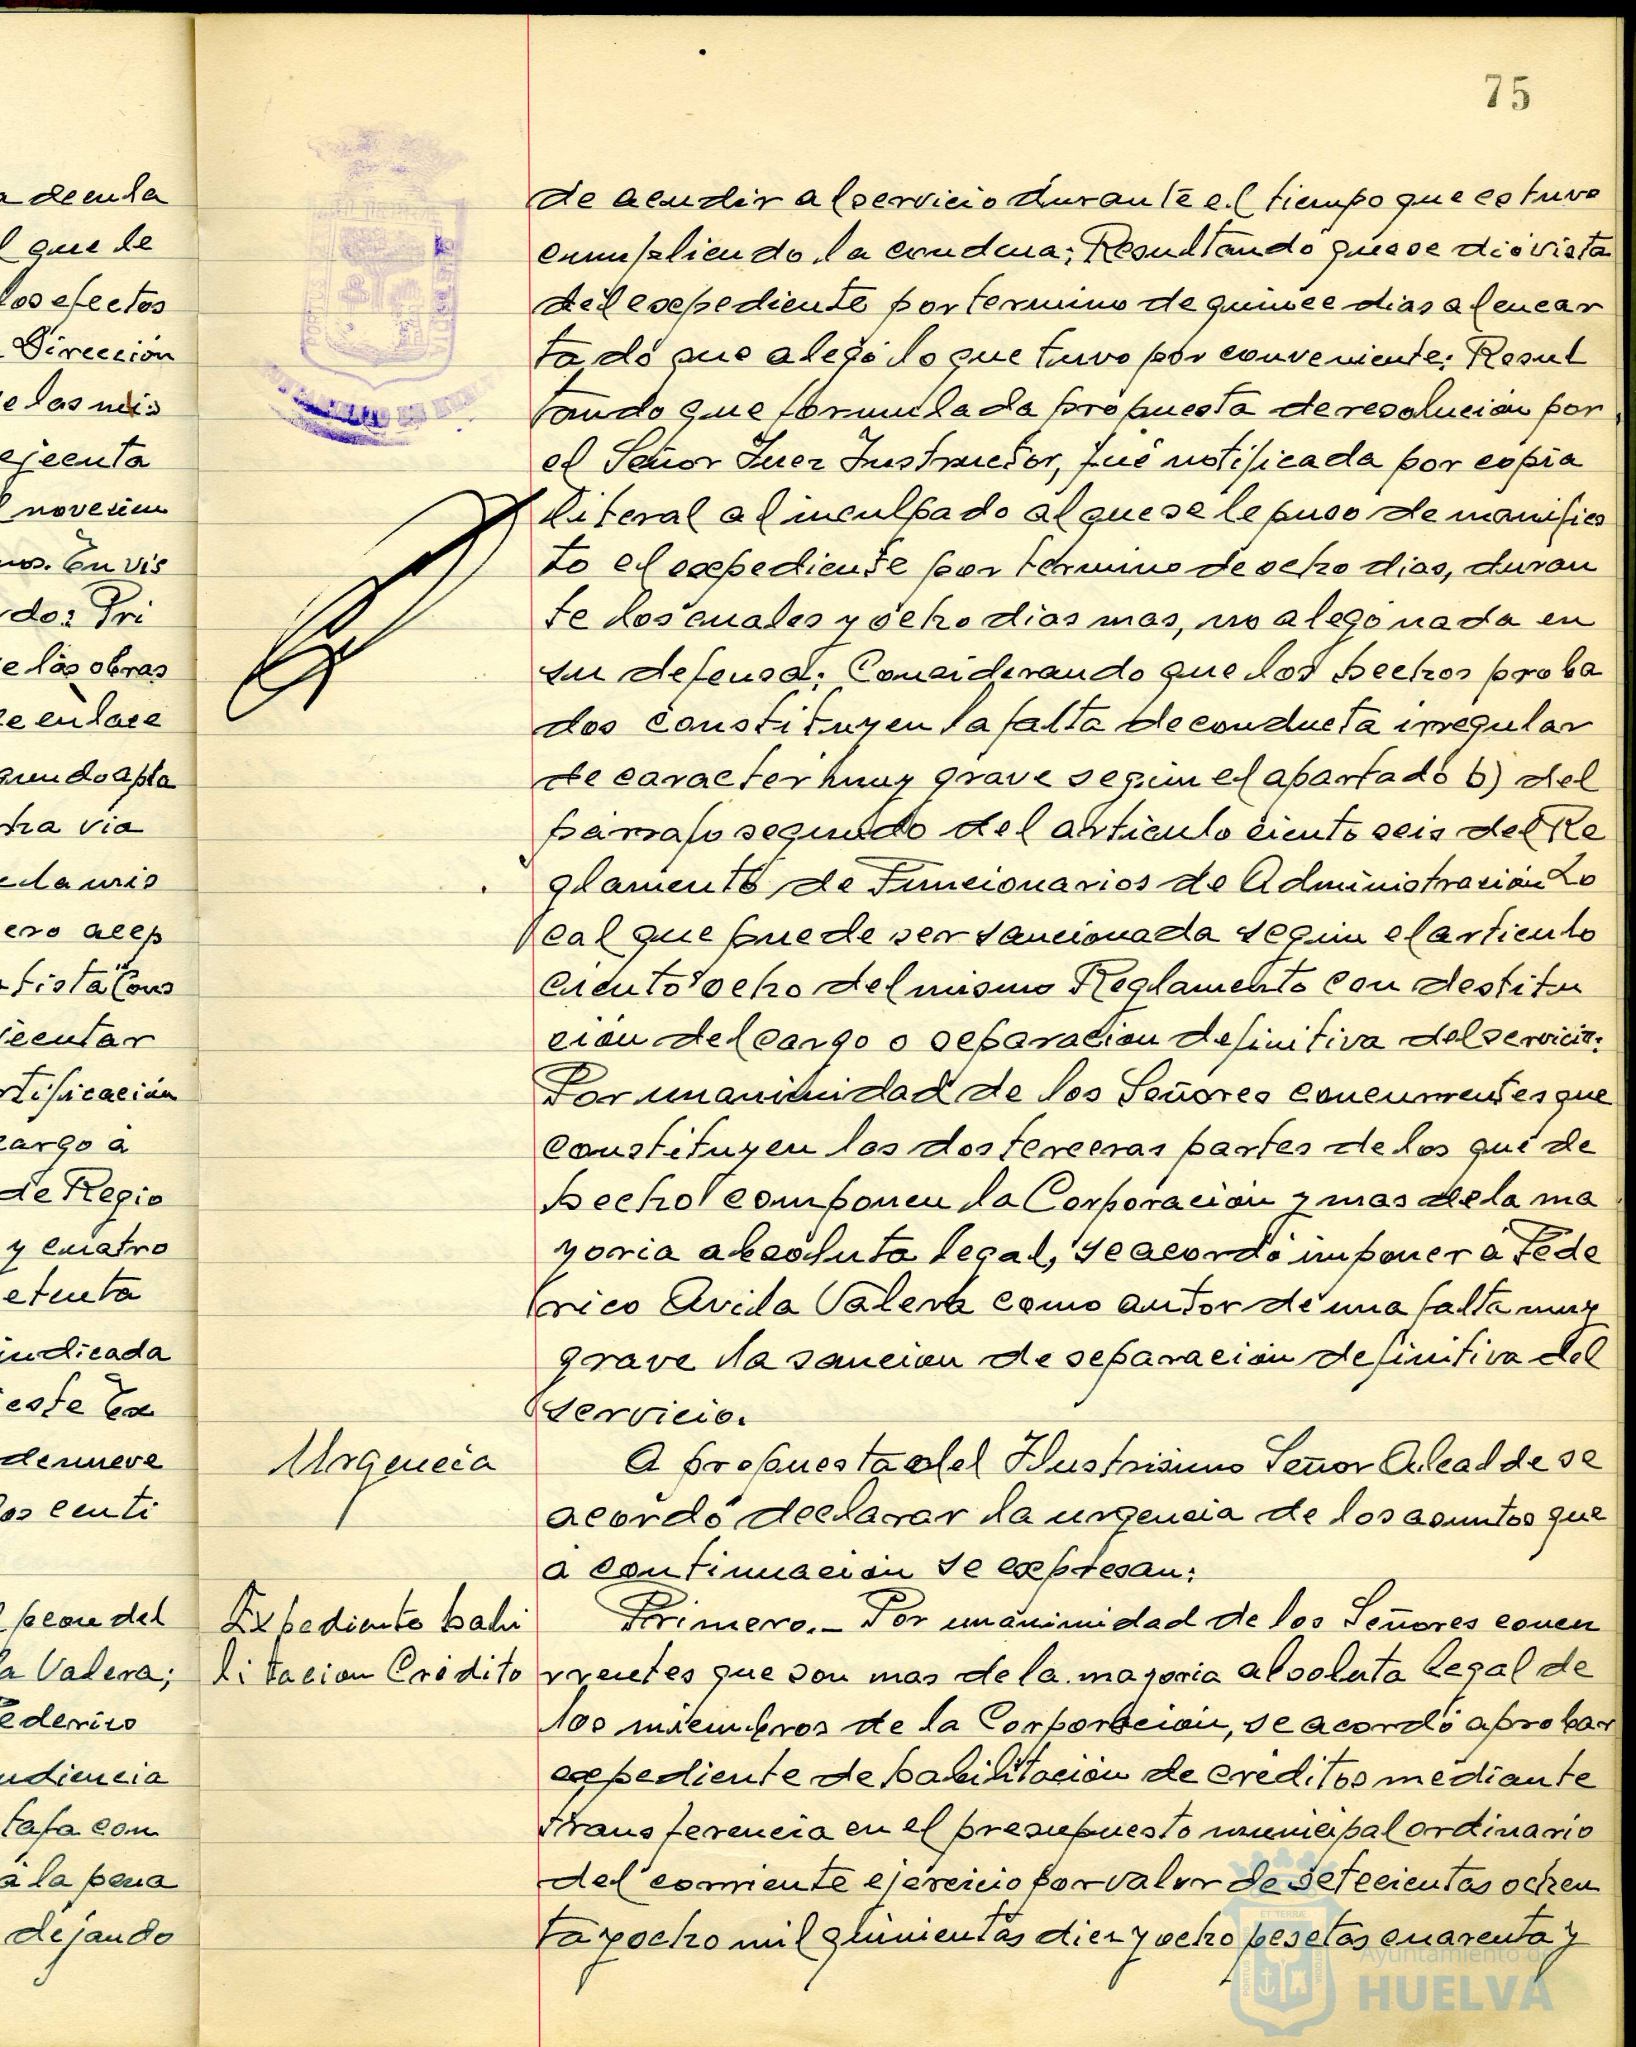 75
a de cula
l que le
los efectos
Dirección
e las mis
ejecuta
l novecien
nos. En vis
rdo: Pri
e las obras
e enlace
gundo apla
tra via
e la mis
ero acep
tista "Cons
jecutar
rtificación
cargo á
de Regio
y cuatro
etenta
indicada
este Ex
de nueve
os centi
peon del
la Valera;
ederico
udiencia
tafa con
a la pena
dejando
de acudir al servicio durante el tiempo que estuvo
cumpliendo la condena; Resultando que se dió vista
del expediente por termino de quince dias al encar
tado que alegó lo que tuvo por conveniente; Resul
tando que formulada propuesta de resolución por
el Señor Juez Instructor, fué notificada por copia
literal al inculpado al que se le puso de manifies
to el expediente por termino de ocho dias, duran
te los cuales y ocho dias mas, no alegó nada en
su defensa; Considerando que los hechos proba
dos constituyen la falta de conducta irregular
de caracter muy grave según el apartado b) del
párrafo segundo del articulo ciento seis del Re
glamento de Funcionarios de Administración Lo
cal que puede ser sancionada según el articulo
ciento ocho del mismo Reglamento con destitu
ción del cargo o separación definitiva del servicio;
Por unanimidad de los Señores concurrentes que
constituyen las dos terceras partes de los que de
hecho componen la Corporación y mas de la ma
yoria absoluta legal, se acordó imponer á Fede
rico Avila Valera como autor de una falta muy
grave la sanción de separación definitiva del
servicio.
Urgencia
A propuesta del Ilustrisimo Señor Alcalde se
acordó declarar la urgencia de los asuntos que
á continuación se expresan:
Expediente habi
litacion Crédito
Primero.- Por unánimidad de los Señores concu
rrentes que son mas de la mayoria absoluta legal de
los miembros de la Corporación, se acordó aprobar
expediente de habilitación de créditos mediante
transferencia en el presupuesto municipal ordinario
del corriente ejercicio por valor de setecientas ochen
ta y ocho mil quinientas diez y ocho pesetas cuarenta y
Ayuntamiento de
HUELVA